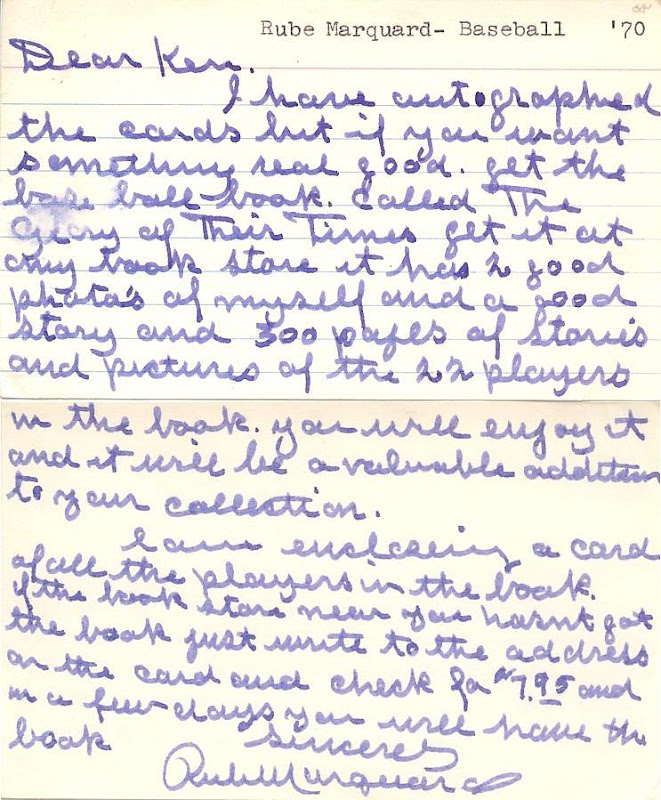 Rube Marquard- Baseball '70
Dear Ken.
I have autographed
the cards but if you want
something real good. get the
base ball book. called The
Glory of Their Times get it at
any book store it has 2 good
photo's of myself and a good
story and 300 pages of stories
and pictures of the 22 players
in the book. you will enjoy it
and it will be a valuable addition
to your collection.
I am enclosing a card
of all the players in the book.
if the book store near you hasnt got
the book just write to the address
on the card and check for $7.95 and
in a few days you will have the
book
Sincerely
Rube Marquard